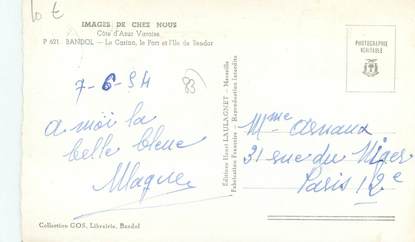 10 €
IMAGES DE CHEZ NOUS
Côte d'Azur Varoise
P 621 BANDOL — Le Casino, le Port et l'Ile de Bendor
PHOTOGRAPHIE
VÉRITABLE
7-6-54
83
a moi la
belle bleue
Editions Henri LAULAGNET - Marseille
Fabrication Française - Reproduction Interdite
Mme Arnaux
31 rue du Niger
Paris 12e
Collection GOS, Librairie, Bandol